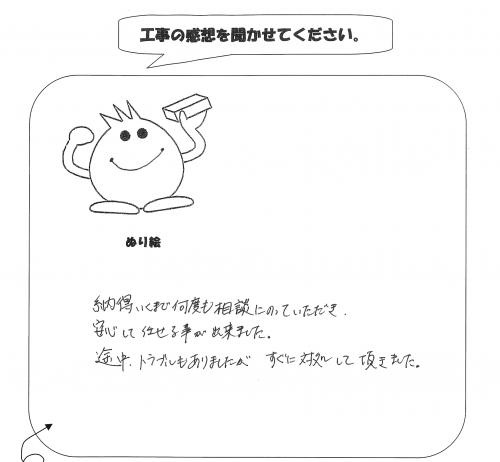 工事の感想を聞かせてください。
ぬり絵
納得いくまで何度も相談にのっていただき、
安心して任せる事が出来ました。
途中、トラブルもありましたが すぐに対処して頂きました。